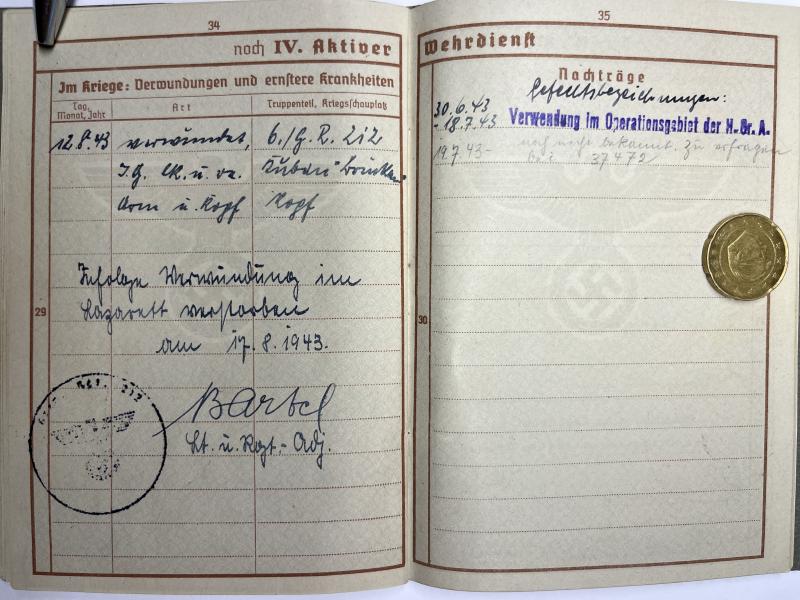 34
noch IV. Aktiver
Im Kriege: Verwundungen und ernstere Krankheiten
Tag, Monat, Jahr
Art
Truppenteil, Kriegsschauplatz
12.8.43 verwundet, 6./G.R. 212
I.G. lk. u. re. Kuban Brücken
Arm u. Kopf Kopf
Infolge Verwundung im
Lazarett verstorben
am 17.8.1943.
Bartel
Lt. u. Rgt.-Adj.
212
29
35
Wehrdienst
Nachträge
Gefechtsbezeichnungen:
30.6.43
- 18.7.43 Verwendung im Operationsgebiet der H.-Gr. A.
19.7.43- noch nicht bekannt. Zu erfragen
37472
30